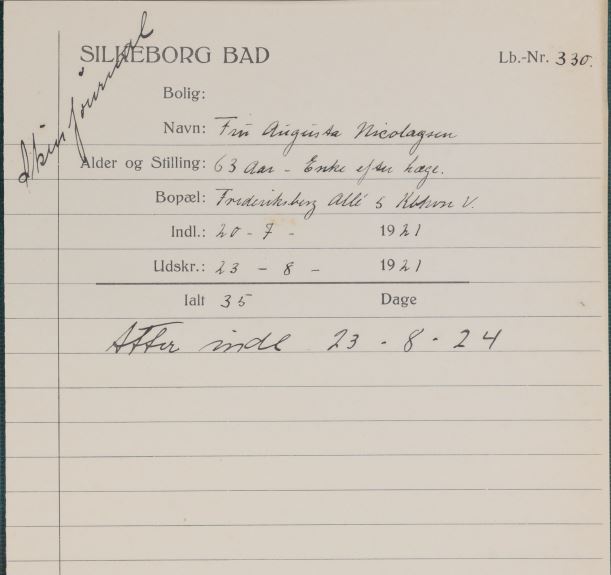 Skinjournal
SILKEBORG BAD Lb.-Nr. 330.
Bolig:
Navn: Fru Augusta Nicolaysen
Alder og Stilling: 63 Aar - Enke efter Læge.
Bopæl: Frederiksberg Allé 5 Kbhvn V.
Indl.: 20 - 7 - 1921
Udskr.: 23 - 8 - 1921
Ialt 35 Dage
Atter indl 23 - 8 - 24